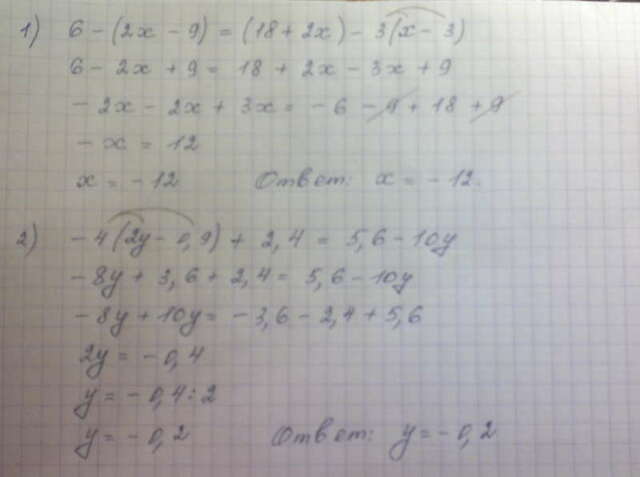 1) 6 - (2x - 9) = (18 + 2x) - 3(x - 3)
6 - 2x + 9 = 18 + 2x - 3x + 9
- 2x - 2x + 3x = - 6 - 9 + 18 + 9
- x = 12
x = - 12 Ответ: x = - 12.
2) - 4(2y - 0,9) + 2,4 = 5,6 - 10y
- 8y + 3,6 + 2,4 = 5,6 - 10y
- 8y + 10y = - 3,6 - 2,4 + 5,6
2y = - 0,4
y = - 0,4 : 2
y = - 0,2 Ответ: y = - 0,2